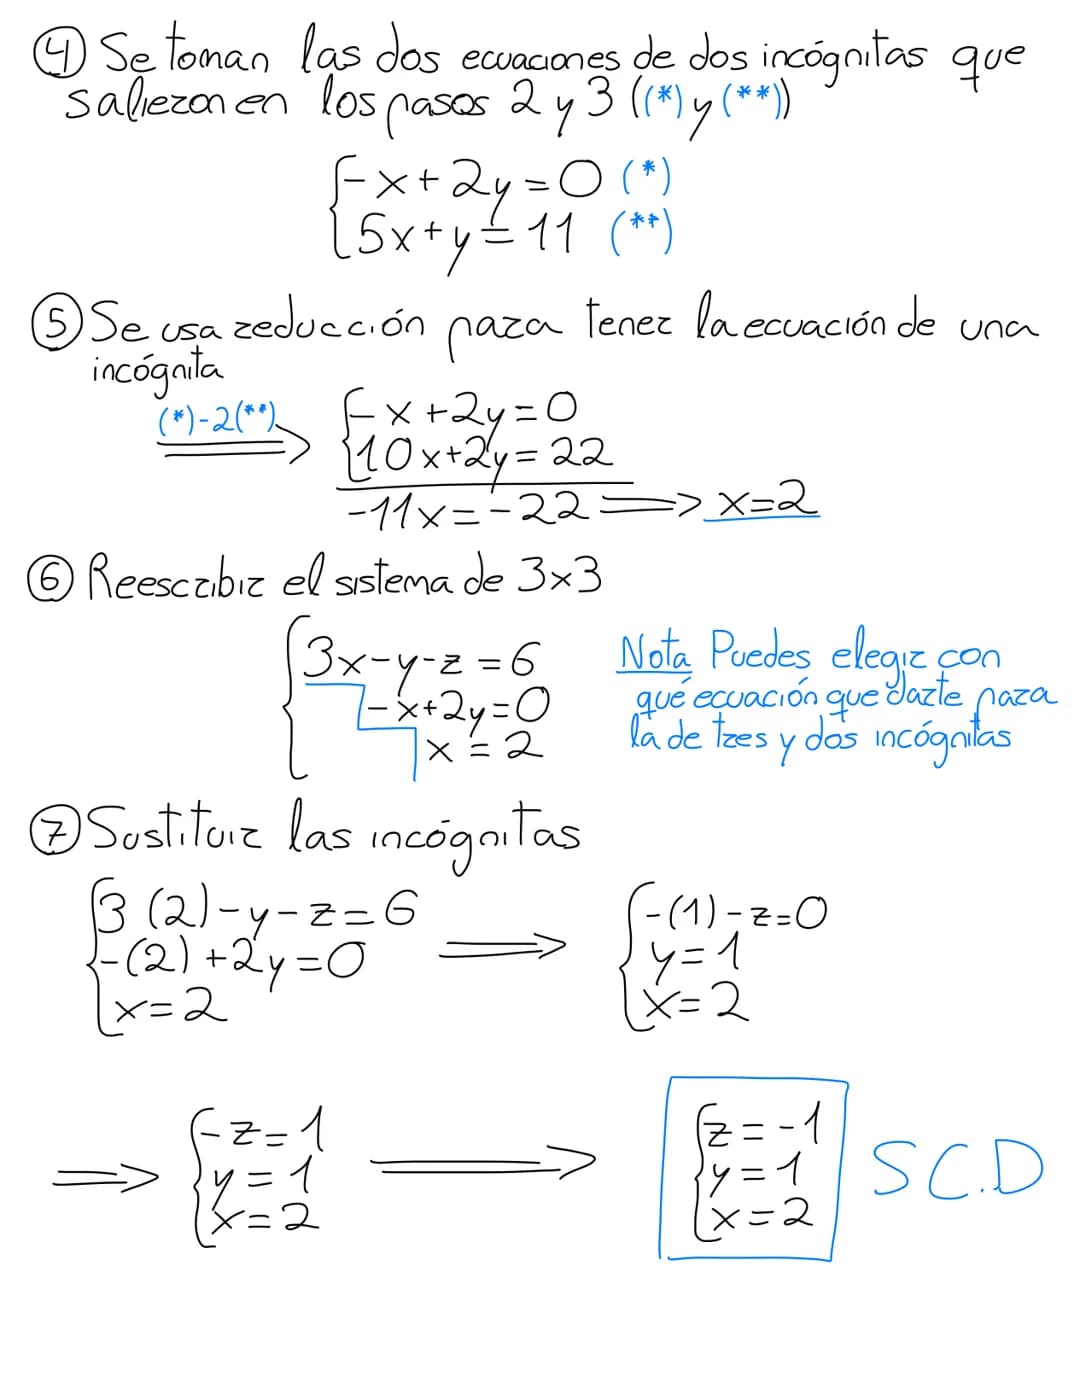 ④ Se toman las dos ecuaciones de dos incógnitas que
salieron en los pasos 2 y 3 ((*) y (**))
-x+2y=0 (*)
5x+y=11 (**)
⑤ Se usa reducción para tener la ecuación de una
incógnita
(*)-2(**)
-x+2y=0
10x+2y=22
-11x=-22 => x=2
⑥ Reescribir el sistema de 3x3
3x-y-z=6
-x+2y=0
x=2
Nota Puedes elegir con
qué ecuación que darte para
la de tres y dos incógnitas
⑦ Sustituir las incógnitas
3(2)-y-z=6
-(2)+2y=0
x=2
=>
-(1)-z=0
y=1
x=2
=>
-z=1
y=1
x=2
=>
z=-1
y=1
x=2
S.C.D